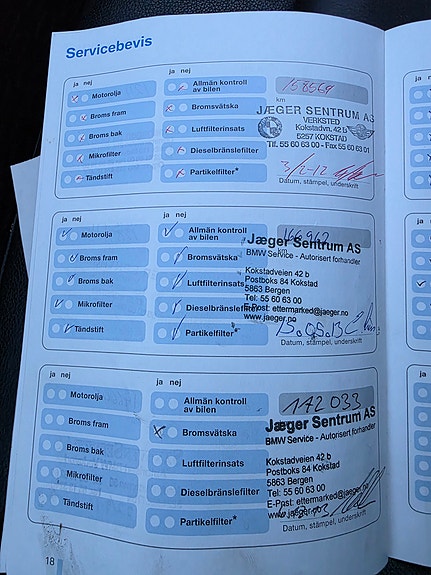 Servicebevis
ja nej
ja nej
Motorolja
Allmän kontroll
av bilen
158569
km
Broms fram
Bromsvätska
JÆGER SENTRUM AS
VERKSTED
Kokstadvn. 42 b
5257 KOKSTAD
Tlf. 55 60 63 00 - Fax 55 60 63 01
Broms bak
Luftfilterinsats
Mikrofilter
Dieselbränslefilter
Tändstift
Partikelfilter*
3/2-12
Datum, stämpel, underskrift
ja nej
ja nej
Motorolja
Allmän kontroll
av bilen
km
Broms fram
Bromsvätska
Jæger Sentrum AS
BMW Service - Autorisert forhandler
Kokstadveien 42 b
Postboks 84 Kokstad
5863 Bergen
Tel: 55 60 63 00
E-Post: ettermarked@jaeger.no
www.jaeger.no
Broms bak
Luftfilterinsats
Mikrofilter
Dieselbränslefilter
Tändstift
Partikelfilter*
15.05.13
Datum, stämpel, underskrift
ja nej
ja nej
Motorolja
Allmän kontroll
av bilen
142 033
Broms fram
Bromsvätska
Jæger Sentrum AS
BMW Service - Autorisert forhandler
Kokstadveien 42 b
Postboks 84 Kokstad
5863 Bergen
Tel: 55 60 63 00
E-Post: ettermarked@jaeger.no
www.jaeger.no
Broms bak
Luftfilterinsats
Mikrofilter
Dieselbränslefilter
Tändstift
Partikelfilter*
Datum, stämpel, underskrift
18